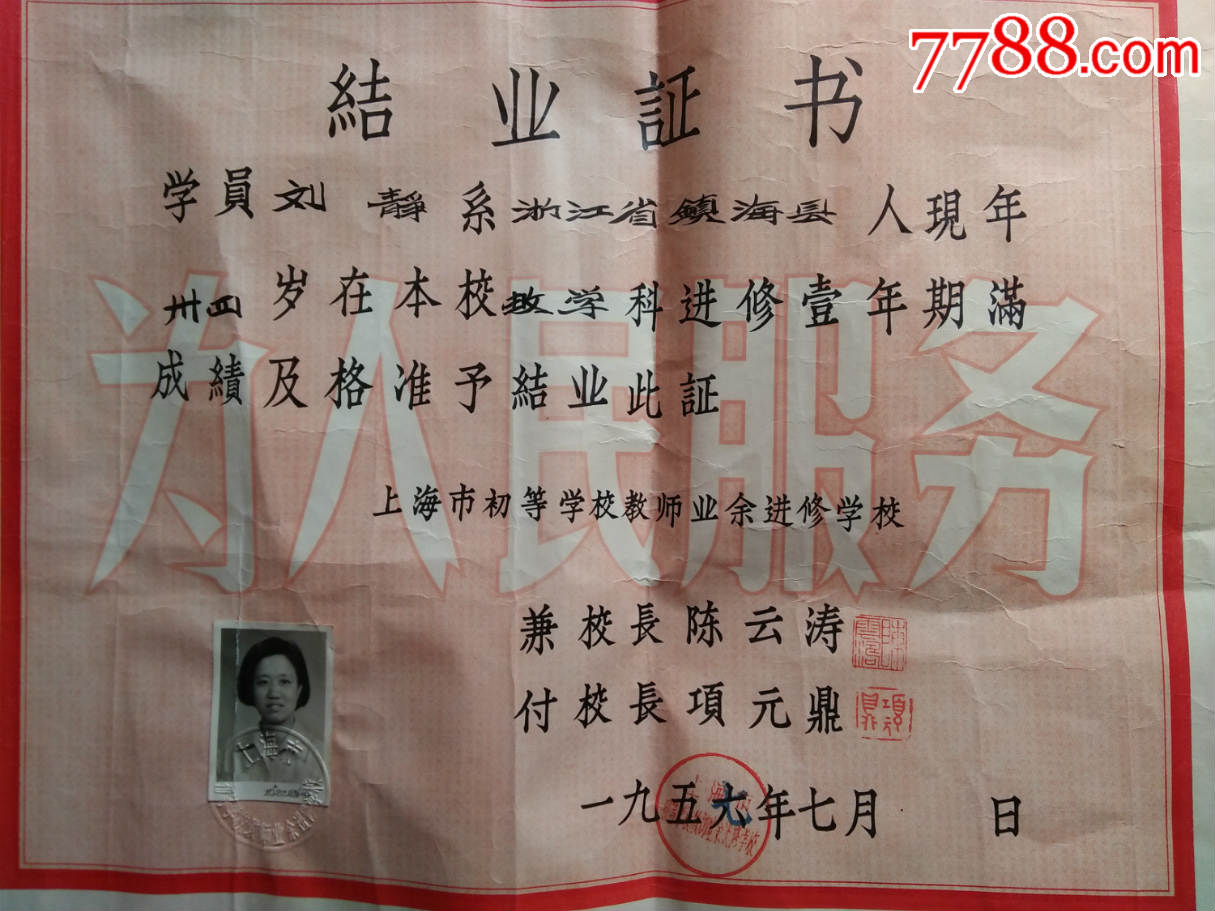 7788.com
結业証书
学員刘静系浙江省鎮海县人現年
卅四岁在本校教学科进修壹年期滿
成績及格准予結业此証
为人民服务
上海市初等学校教师业余进修学校
兼校長陈云涛
付校長項元鼎
一九五年七月 日
上海市